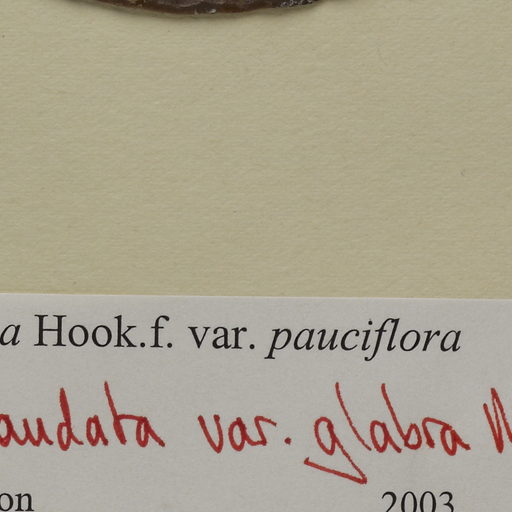 a Hook.f. var. pauciflora
audata var. glabra
on 2003